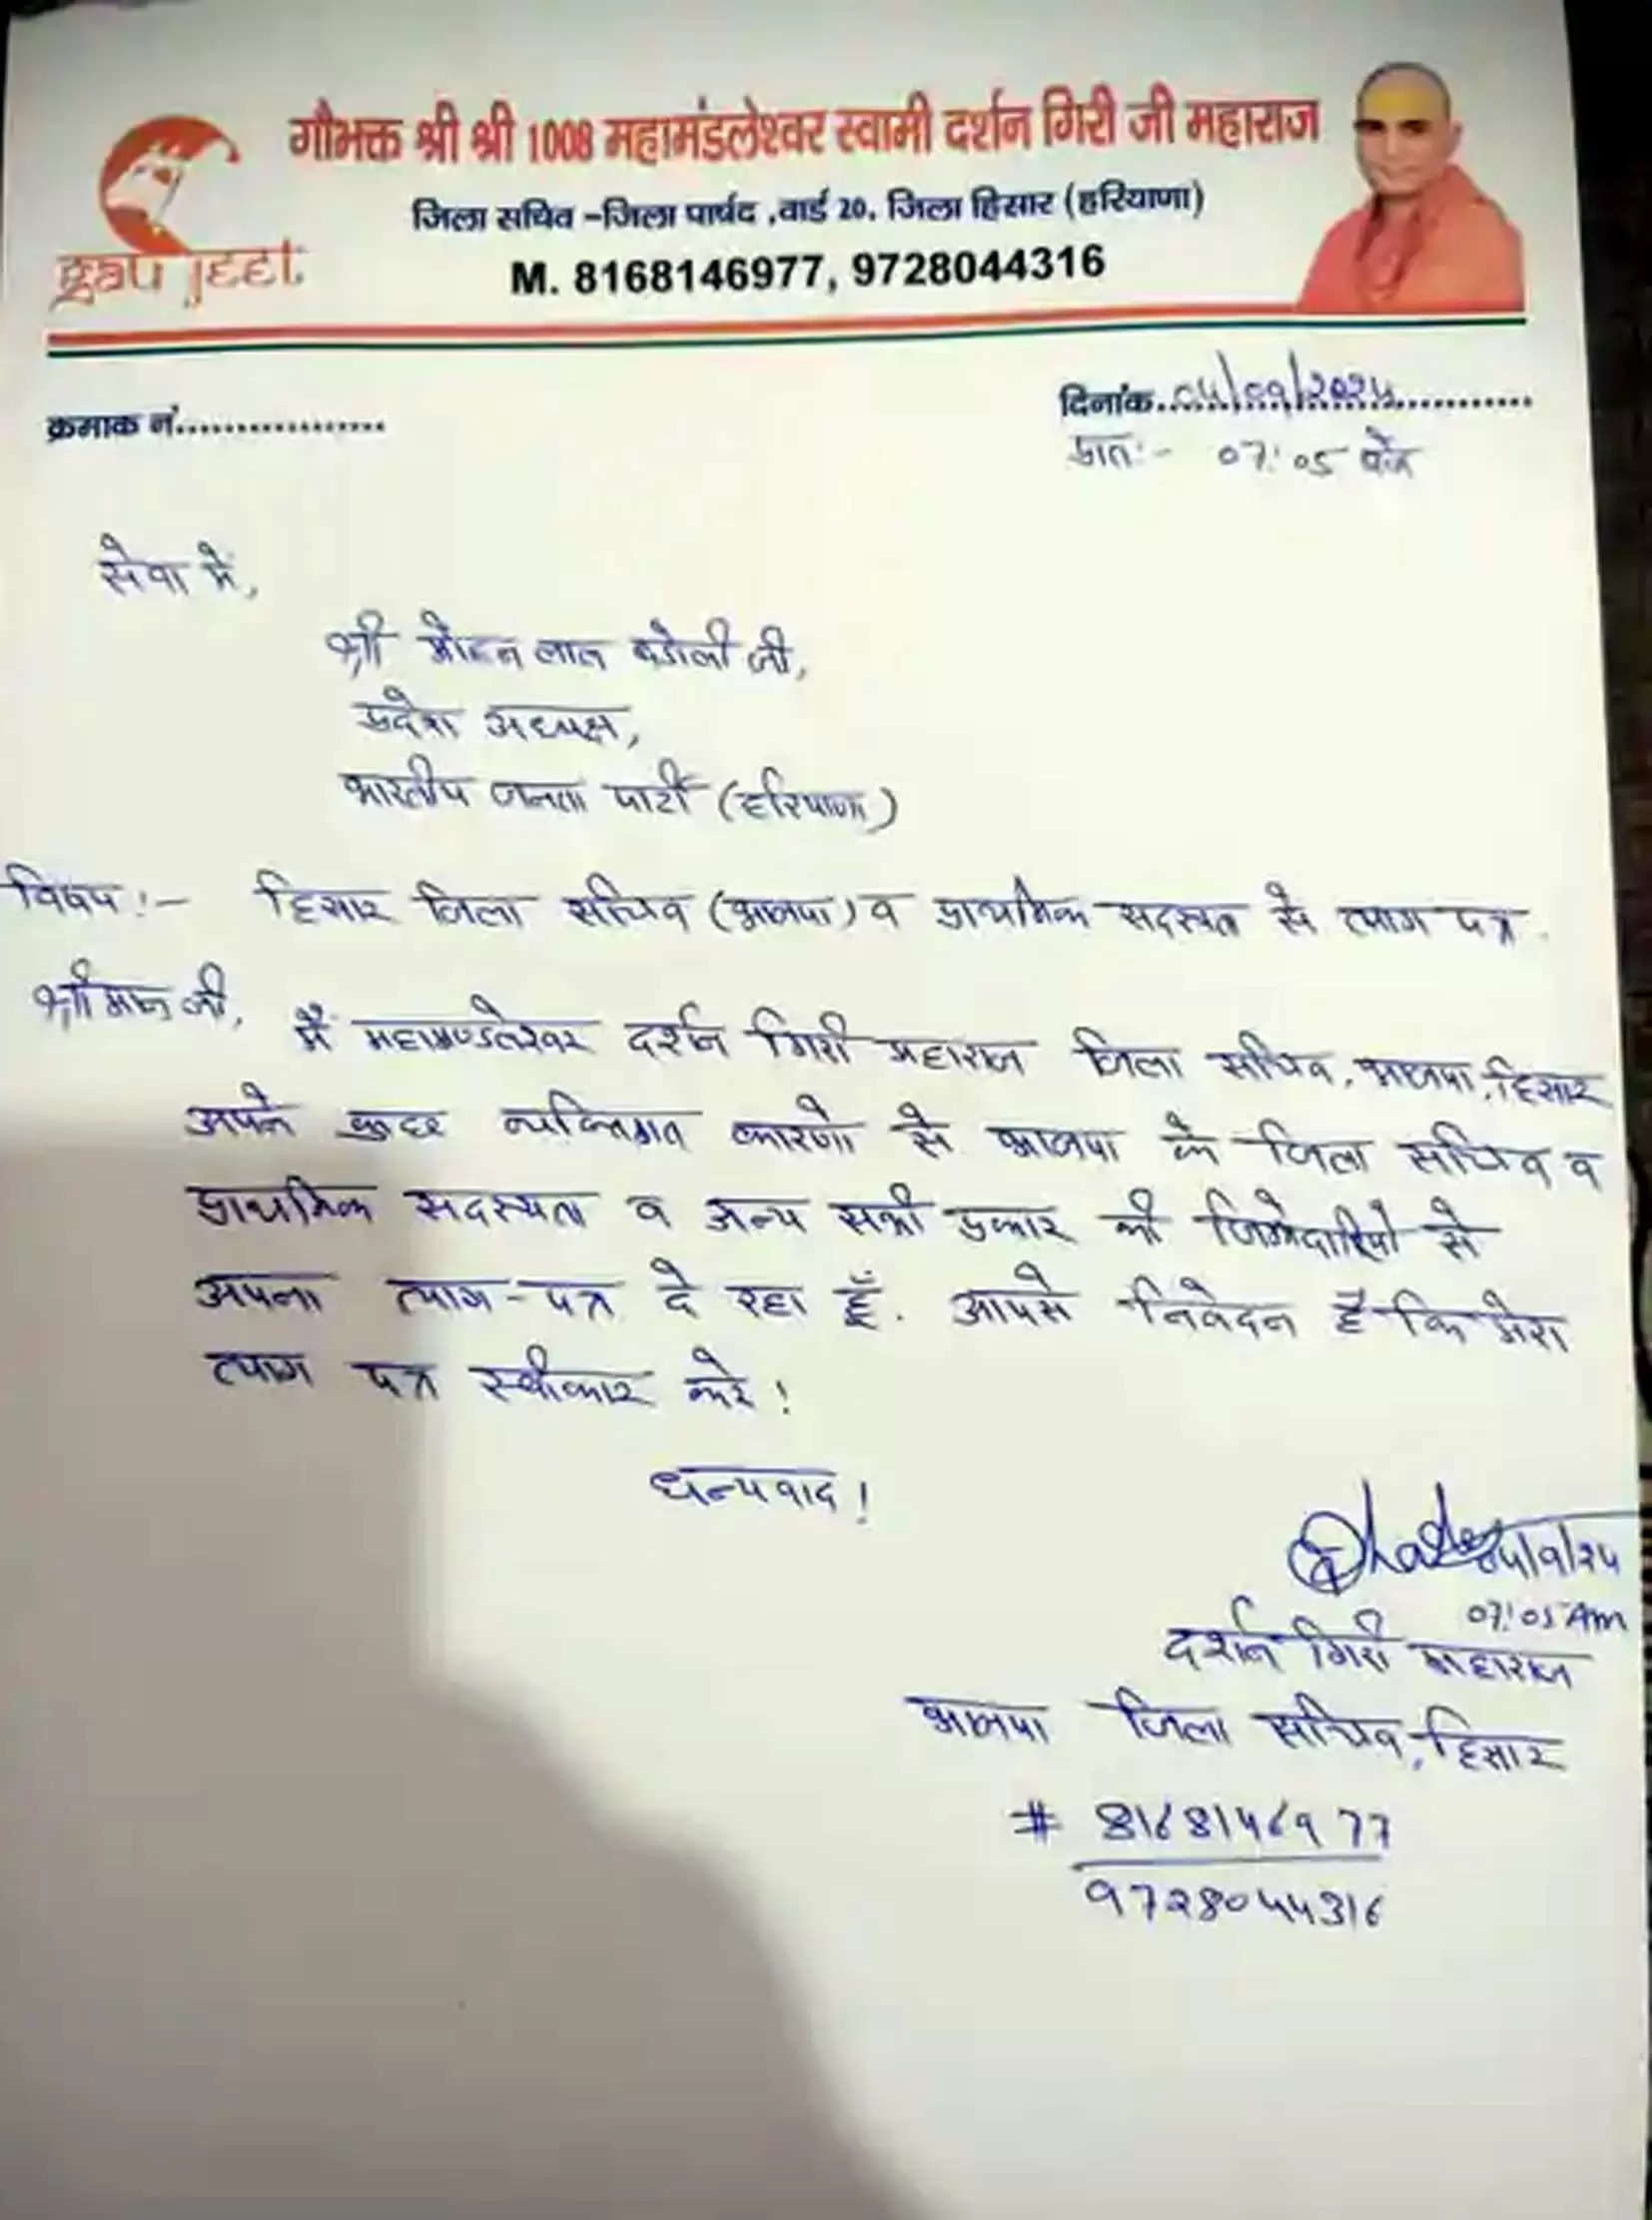 गौभक्त श्री श्री 1008 महामंडलेश्वर स्वामी दर्शन गिरी जी महाराज
जिला सचिव -जिला पार्षद ,वार्ड 20, जिला हिसार (हरियाणा)
gau jeet
M. 8168146977, 9728044316
क्रमाक नं..................
दिनांक..०५/०९/२०२४............
प्रात:- ०7:०5 बजे
सेवा में,
श्री मोहन लाल बडोली जी,
प्रदेश अध्यक्ष,
भारतीय जनता पार्टी (हरियाणा)
विषय :- हिसार जिला सचिव (भाजपा) व प्राथमिक सदस्यता से त्याग पत्र.
श्रीमान जी,
मैं महामण्डलेश्वर दर्शन गिरी महाराज जिला सचिव, भाजपा, हिसार
अपने कुछ व्यक्तिगत कारणो से भाजपा के जिला सचिव व
प्राथमिक सदस्यता व अन्य सभी प्रकार की जिम्मेदारियो से
अपना त्याग-पत्र दे रहा हूँ. आपसे निवेदन है कि मेरा
त्याग पत्र स्वीकार करे!
धन्यवाद!
०५/९/२४
07:05 Am
दर्शन गिरी महाराज
भाजपा जिला सचिव, हिसार
# 8168146977
9728044316